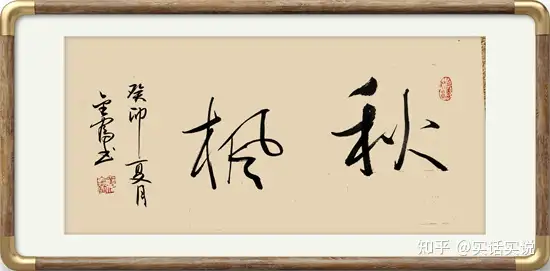 秋枫
癸卯夏月
书
知乎 @实话实说